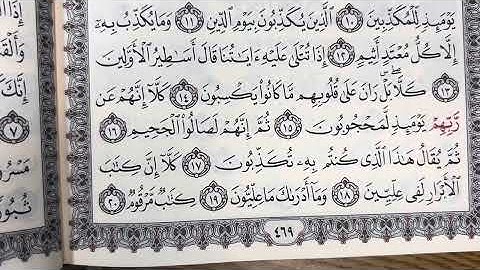 يَوْمَئِذٍ لِّلْمُكَذِّبِينَ ١٠ الَّذِينَ يُكَذِّبُونَ بِيَوْمِ الدِّينِ ١١ وَمَا يُكَذِّبُ بِهِۦٓ
إِلَّا كُلُّ مُعْتَدٍ أَثِيمٍ ١٢ إِذَا تُتْلَىٰ عَلَيْهِ ءَايَٰتُنَا قَالَ أَسَٰطِيرُ الْأَوَّلِينَ
١٣ كَلَّا ۖ بَلْ ۜ رَانَ عَلَىٰ قُلُوبِهِم مَّا كَانُوا۟ يَكْسِبُونَ ١٤ كَلَّآ إِنَّهُمْ عَن
رَّبِّهِمْ يَوْمَئِذٍ لَّمَحْجُوبُونَ ١٥ ثُمَّ إِنَّهُمْ لَصَالُوا۟ الْجَحِيمِ ١٦
ثُمَّ يُقَالُ هَٰذَا الَّذِى كُنتُم بِهِۦ تُكَذِّبُونَ ١٧ كَلَّآ إِنَّ كِتَٰبَ
الْأَبْرَارِ لَفِى عِلِّيِّينَ ١٨ وَمَآ أَدْرَىٰكَ مَا عِلِّيُّونَ ١٩ كِتَٰبٌ مَّرْقُومٌ ٢٠
٤٦٩
إِذَا
إِنَّكَ
٧